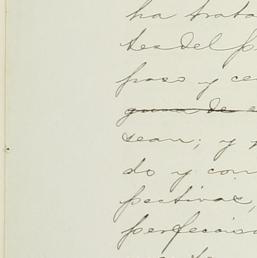 ha trata
tes del p
paso y ce
guna de
sean; y p
do y con
pectivas,
perfeccio